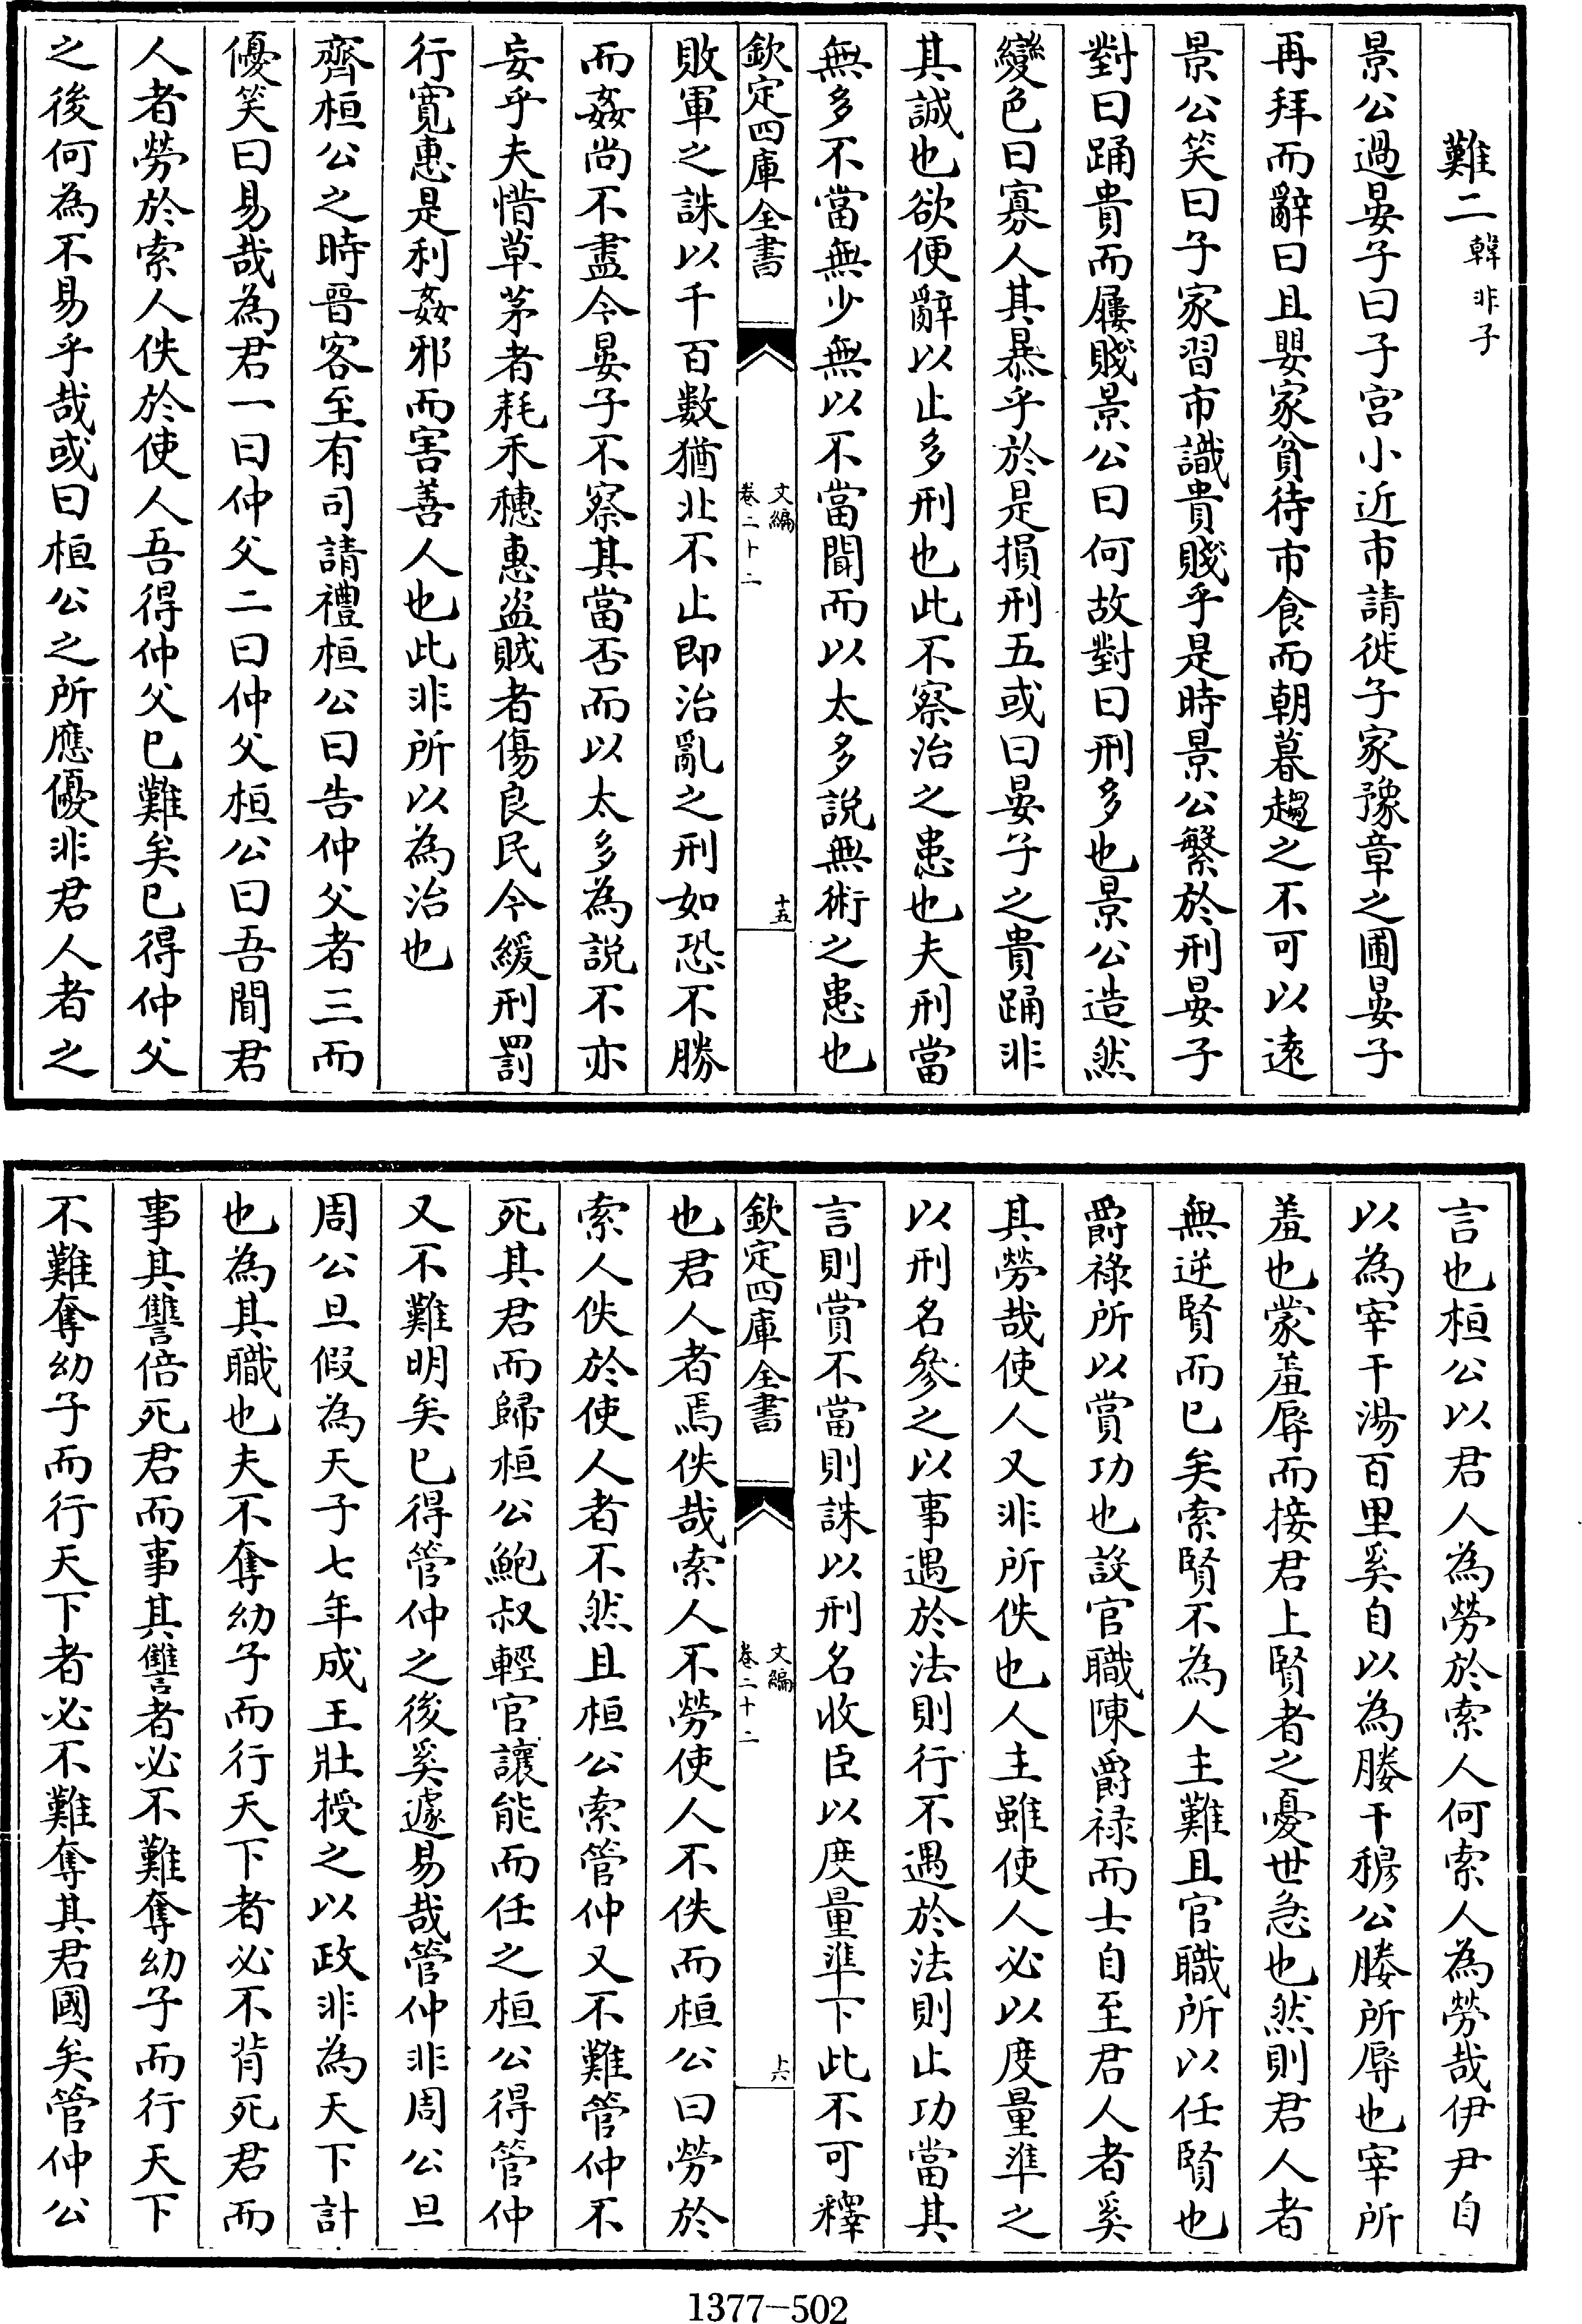 難二韓非子
景公過晏子曰子宮小近市請徙子家豫章之圃晏子
再拜而辭曰且嬰家貧待市食而朝暮趨之不可以逺
景公笑曰子家習市識貴賤乎是時景公繁於刑晏子
對曰踊貴而屨賤景公曰何故對曰刑多也景公造然
變色曰寡人其暴乎於是損刑五或曰晏子之貴踊非
其誠也欲便辭以止多刑也此不察治之患也夫刑當
無多不當無少無以不當聞而以太多説無術之患也
欽定四庫全書
文編
卷二十二
十五
敗軍之誅以千百數猶北不止即治亂之刑如恐不勝
而姦尚不盡今晏子不察其當否而以太多為説不亦
妄乎夫惜草茅者耗禾穗惠盜賊者傷良民今緩刑罰
行寛惠是利姦邪而害善人也此非所以為治也
齊桓公之時晉客至有司請禮桓公曰告仲父者三而
優笑曰易哉為君一曰仲父二曰仲父桓公曰吾聞君
人者勞於索人佚於使人吾得仲父已難矣已得仲父
之後何為不易乎哉或曰桓公之所應優非君人者之
言也桓公以君人為勞於索人何索人為勞哉伊尹自
以為宰干湯百里奚自以為媵干穆公媵所辱也宰所
羞也蒙羞辱而接君上賢者之憂世急也然則君人者
無逆賢而已矣索賢不為人主難且官職所以任賢也
爵祿所以賞功也設官職陳爵祿而士自至君人者奚
其勞哉使人又非所佚也人主雖使人必以度量準之
以刑名參之以事遇於法則行不遇於法則止功當其
言則賞不當則誅以刑名收臣以度量準下此不可釋
欽定四庫全書
文編
卷二十二
十六
也君人者焉佚哉索人不勞使人不佚而桓公曰勞於
索人佚於使人者不然且桓公索管仲又不難管仲不
死其君而歸桓公鮑叔輕官讓能而任之桓公得管仲
又不難明矣已得管仲之後奚遽易哉管仲非周公旦
周公旦假為天子七年成王壯授之以政非為天下計
也為其職也夫不奪幼子而行天下者必不背死君而
事其讐倍死君而事其讐者必不難奪幼子而行天下
不難奪幼子而行天下者必不難奪其君國矣管仲公
1377-502